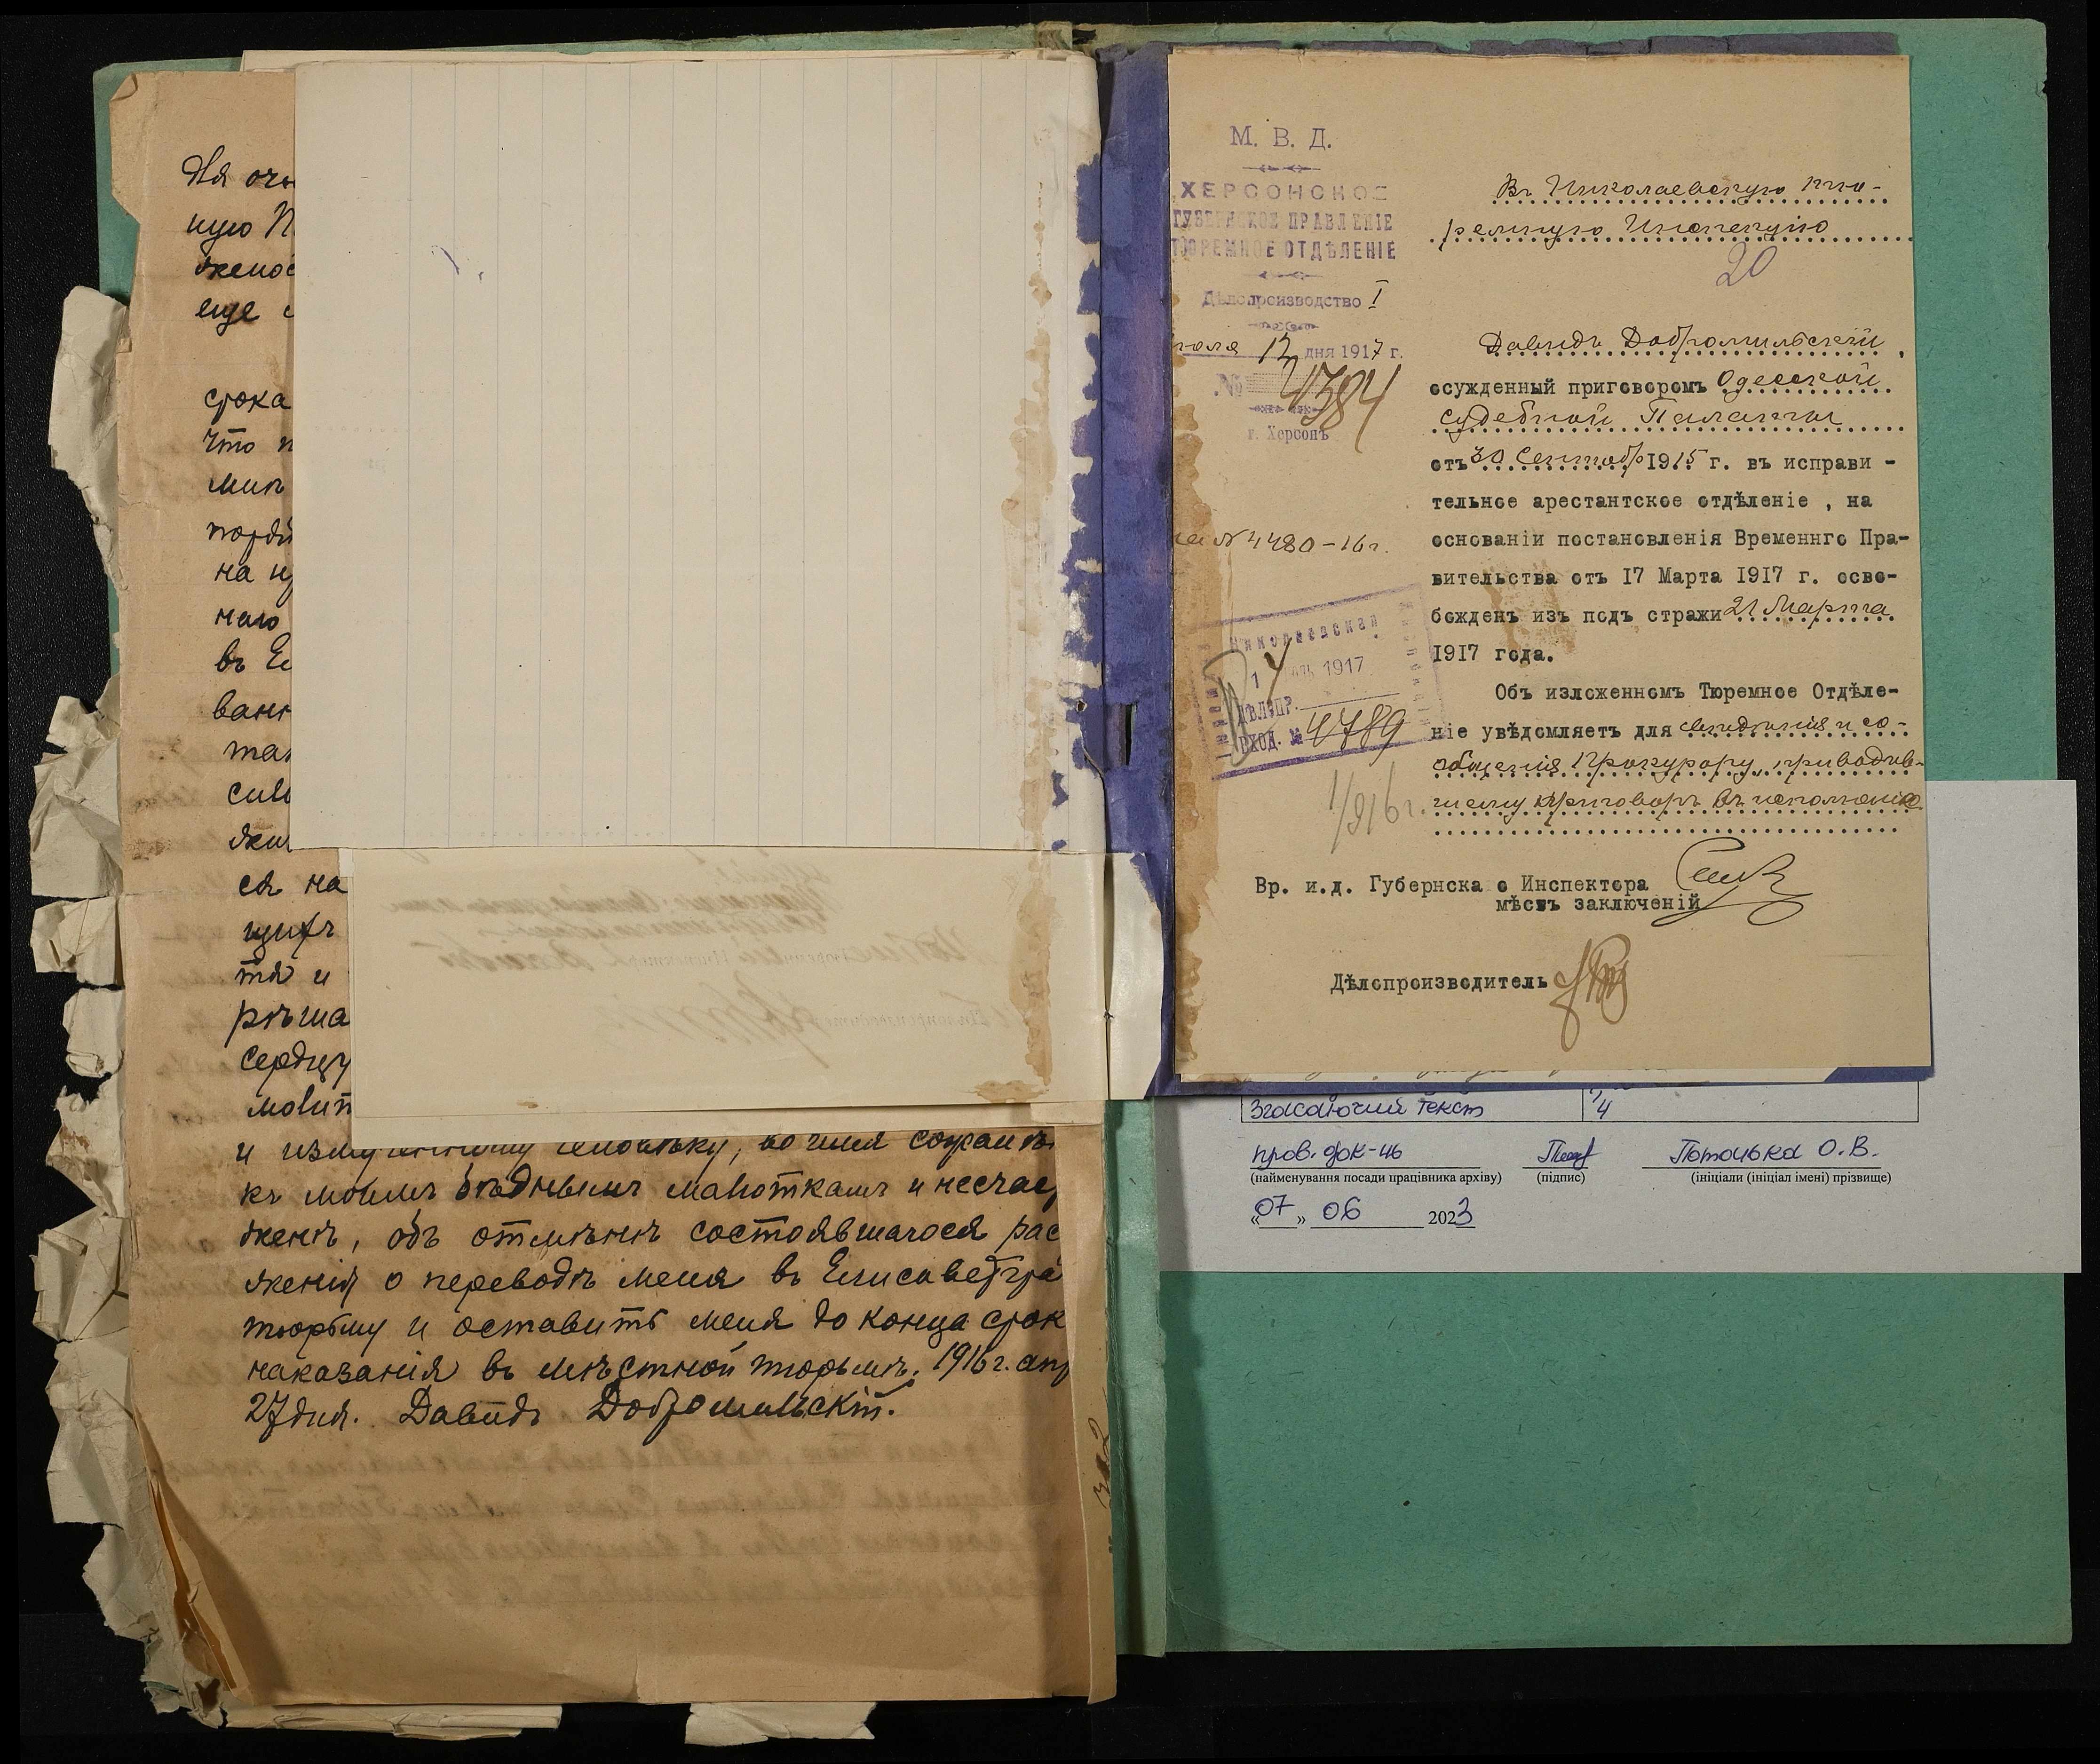 Для
ную П
женос
еще
срока
что
мин
на
наго
въ Ел
ван
так
ся на
тя и
рѣша
сердцу
молит
и измученному человѣку, во имя
къ моимъ бѣднымъ малюткамъ и несчас
женѣ, объ отмѣнѣ состоявшагося рас
женія о переводѣ меня въ Елисаветгра
тюрьму и оставить меня до конца срок
наказанія въ мѣстной тюрьмѣ. 1916 г. апр
27 дня. Давидъ Добромильскій.
М. В. Д.
ХЕРСОНСКОЕ
ГУБЕРНСКОЕ ПРАВЛЕНІЕ
ТЮРЕМНОЕ ОТДѢЛЕНІЕ
Дѣлопроизводство I
юля 12 дня 1917 г.
№ 4384
г. Херсонъ
№ 4480-16 г.
Николаевская
14 1917
ДѢЛОПР.
ВХОД. № 4789
1/916 г.
Въ Николаевскую тю-
ремную Инспекцію
20
Давидъ Добромильскій,
осужденный приговоромъ Одесской
судебной Палаты
отъ 30 Сентябр 1915 г. въ исправи-
тельное арестантское отдѣленіе, на
основаніи постановленія Временнго Пра-
вительства отъ 17 Марта 1917 г. осво-
божденъ изъ подъ стражи 21 Марта
1917 года.
Объ изложенномъ Тюремное Отдѣле-
ніе увѣдомляетъ для свѣдѣнія и со-
общенія Прокурору, приводив-
шему приговоръ въ исполненіе.
Вр. и.д. Губернска о Инспектора
мѣстъ заключеній
Дѣлопроизводитель
Згасаючий текст 4
пров. док-ів Потоцька О.В.
(найменування посади працівника архіву) (підпис) (ініціали (ініціал імені) прізвище)
«07» 06 2023